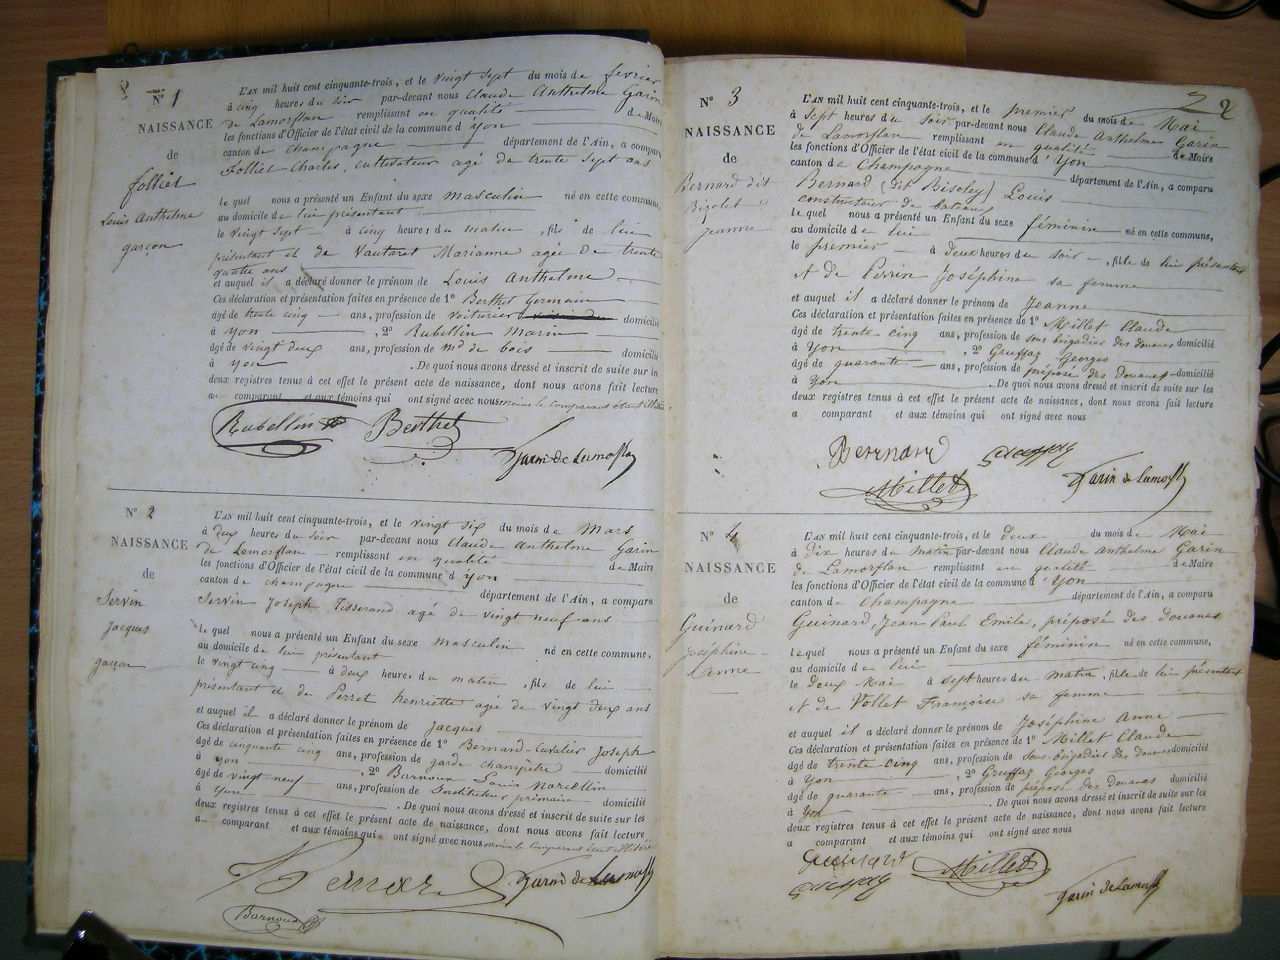 2
N° 1
NAISSANCE
de
folliet
Louis Anthelme
garçon
L'AN mil huit cent cinquante-trois, et le vingt sept du mois de fevrier
à cinq heures du soir par-devant nous Claude Anthelme Garin
de Lamorflan remplissant en qualité de Maire
les fonctions d'Officier de l'état civil de la commune d yon
canton de champagne département de l'Ain, a comparu
Folliet Charles, cultivateur agé de trente sept ans
le quel nous a présenté un Enfant du sexe masculin né en cette commune,
au domicile de lui présentant
le vingt sept à cinq heures du matin, fils de lui
présentant et de Vautaret Marianne agée de trente
quatre ans
et auquel il a déclaré donner le prénom de Louis Anthelme
Ces déclaration et présentation faites en présence de 1° Berthet Germain
âgé de trente cinq ans, profession de voiturier domicilié
à yon, 2° Rubellin Marin
âgé de vingt deux ans, profession de Md de bois domicilié
à yon. De quoi nous avons dressé et inscrit de suite sur les
deux registres tenus à cet effet le présent acte de naissance, dont nous avons fait lecture
au comparant et aux témoins qui ont signé avec nous moins le comparant étant illitéré
Rubellin Berthet
Garin de Lamorflan
N° 2
NAISSANCE
de
Servin
Jacques
garçon
L'AN mil huit cent cinquante-trois, et le vingt six du mois de Mars
à deux heures du soir par-devant nous Claude Anthelme Garin
de Lemorflan remplissant en qualité de Maire
les fonctions d'Officier de l'état civil de la commune d yon
canton de champagne département de l'Ain, a comparu
Servin Joseph Tisserand agé de vingt neuf ans
le quel nous a présenté un Enfant du sexe masculin né en cette commune,
au domicile de lui présentant
le vingt cinq à deux heures du matin, fils de lui
présentant et de Perret henriette agée de vingt deux ans
et auquel il a déclaré donner le prénom de Jacques
Ces déclaration et présentation faites en présence de 1° Bernard-Cavalier Joseph
âgé de cinquante cinq ans, profession de garde champêtre domicilié
à yon, 2° Barnoud Louis Marcellin
âgé de vingt neuf ans, profession de Instituteur primaire domicilié
à yon. De quoi nous avons dressé et inscrit de suite sur les
deux registres tenus à cet effet le présent acte de naissance, dont nous avons fait lecture
au comparant et aux témoins qui ont signé avec nous moins le comparant étant illitéré
Garin de Lamorflan
Barnoud
2
N° 3
NAISSANCE
de
Bernard dit
Bizolet
jeanne
L'AN mil huit cent cinquante-trois, et le premier du mois de Mai
à sept heures du soir par-devant nous Claude Anthelme Garin
de Lamorflan remplissant en qualité de Maire
les fonctions d'Officier de l'état civil de la commune d'Yon
canton de Champagne département de l'Ain, a comparu
Bernard (dit Bisoley) Louis
constructeur de bateaux
le quel nous a présenté un Enfant du sexe féminin né en cette commune,
au domicile de lui
le premier à Deux heures du soir, fille de lui présentant
et de Perrin Joséphine sa femme
et auquel il a déclaré donner le prénom de Jeanne
Ces déclaration et présentation faites en présence de 1° Millet Claude
âgé de trente cinq ans, profession de sous brigadier des douanes domicilié
à Yon, 2° Gruffaz Georges
âgé de quarante ans, profession de préposé des douanes domicilié
à Yon. De quoi nous avons dressé et inscrit de suite sur les
deux registres tenus à cet effet le présent acte de naissance, dont nous avons fait lecture
a comparant et aux témoins qui ont signé avec nous
Bernard
Millet Garin de Lamorfl
N° 4
NAISSANCE
de
Guinard
Joséphine
Anne
L'AN mil huit cent cinquante-trois, et le deux du mois de Mai
à Dix heures du matin par-devant nous Claude Anthelme Garin
de Lamorflan remplissant en qualité de Maire
les fonctions d'Officier de l'état civil de la commune d'Yon
canton de Champagne département de l'Ain, a comparu
Guinard, Jean Paul Emile, préposé des Douanes
le quel nous a présenté un Enfant du sexe féminin né en cette commune,
au domicile de lui
le Deux Mai à sept heures du matin, fille de lui présentant
et de Vollet Françoise sa femme
et auquel il a déclaré donner le prénom de Joséphine Anne
Ces déclaration et présentation faites en présence de 1° Millet Claude
âgé de trente-cinq ans, profession de sous-brigadier des douanes domicilié
à Yon, 2° Gruffaz Georges
âgé de quarante ans, profession de préposé des Douanes domicilié
à Yon. De quoi nous avons dressé et inscrit de suite sur les
deux registres tenus à cet effet le présent acte de naissance, dont nous avons fait lecture
a comparant et aux témoins qui ont signé avec nous
Guinard Millet
Garin de Lamorfl